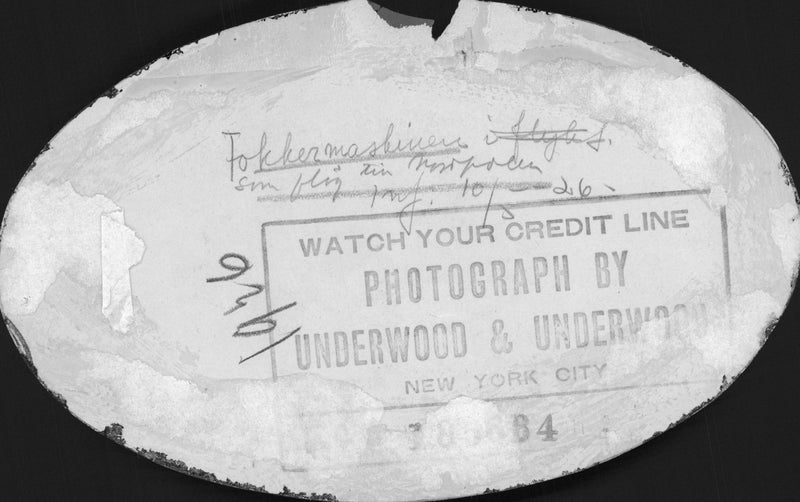 Fokkermaskinen i flygt f.
som fløj til Nordpolen
10/5 26.
1926
WATCH YOUR CREDIT LINE
PHOTOGRAPH BY
UNDERWOOD & UNDERWOOD
NEW YORK CITY
84